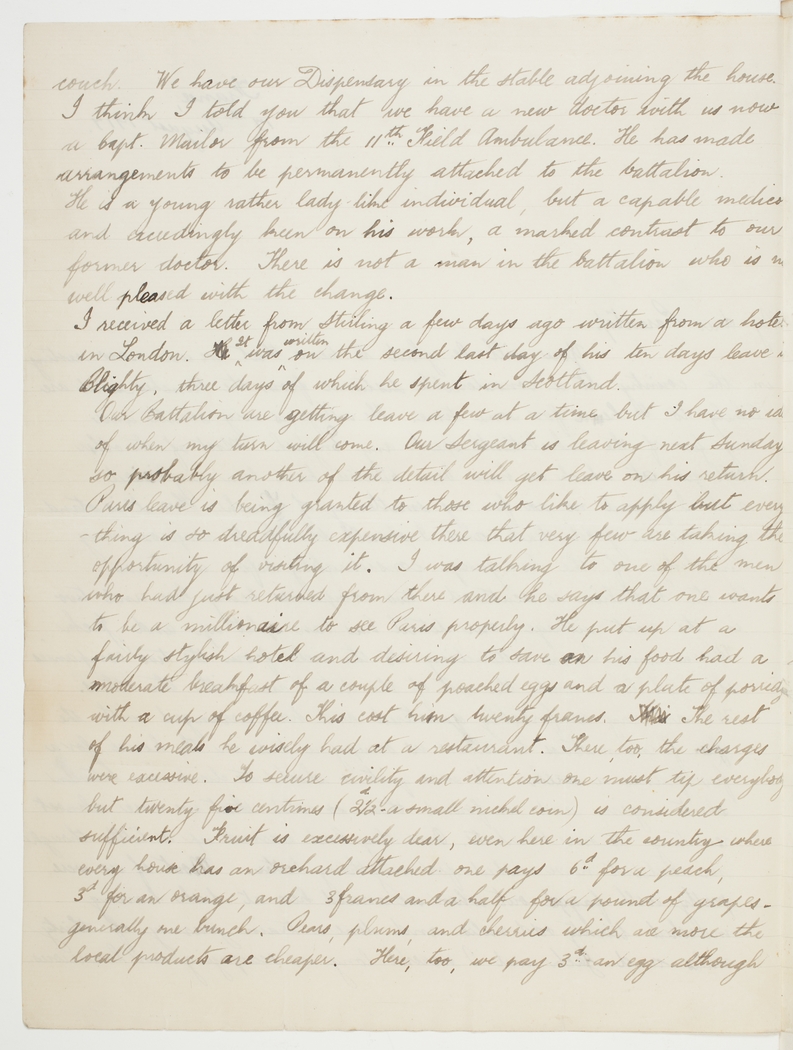 couch. We have our Dispensary in the stable adjoining the house.
I think I told you that we have a new doctor with us now
a Capt. Mailor from the 11th Field Ambulance. He has made
arrangements to be permanently attached to the battalion.
He is a young rather lady-like individual, but a capable medico
and exceedingly keen on his work, a marked contrast to our
former doctor. There is not a man in the battalion who is n
well pleased with the change.
I received a letter from Stirling a few days ago written from a hote
in London. It was written on the second last day of his ten days leave i
Blighty, three days of which he spent in Scotland.
Our Battalion are getting leave a few at a time but I have no id
of when my turn will come. Our Sergeant is leaving next Sunday
so probably another of the detail will get leave on his return.
Paris leave is being granted to those who like to apply but every
-thing is so dreadfully expensive there that very few are taking the
opportunity of visiting it. I was talking to one of the men
who had just returned from there and he says that one wants
to be a millionaire to see Paris properly. He put up at a
fairly stylish hotel and desiring to save on his food had a
moderate breakfast of a couple of poached eggs and a plate of porridg
with a cup of coffee. This cost him twenty francs. The rest
of his meals he wisely had at a restaurant. There, too, the charges
were excessive. To secure civility and attention one must tip everybody
but twenty five centimes (2½d - a small nickel coin) is considered
sufficient. Fruit is excessively dear, even here in the country where
every house has an orchard attached one pays 6d for a peach,
3d for an orange, and 3 francs and a half for a pound of grapes -
generally one bunch. Pears, plums, and cherries which are more the
local products are cheaper. Here, too, we pay 3d an egg although